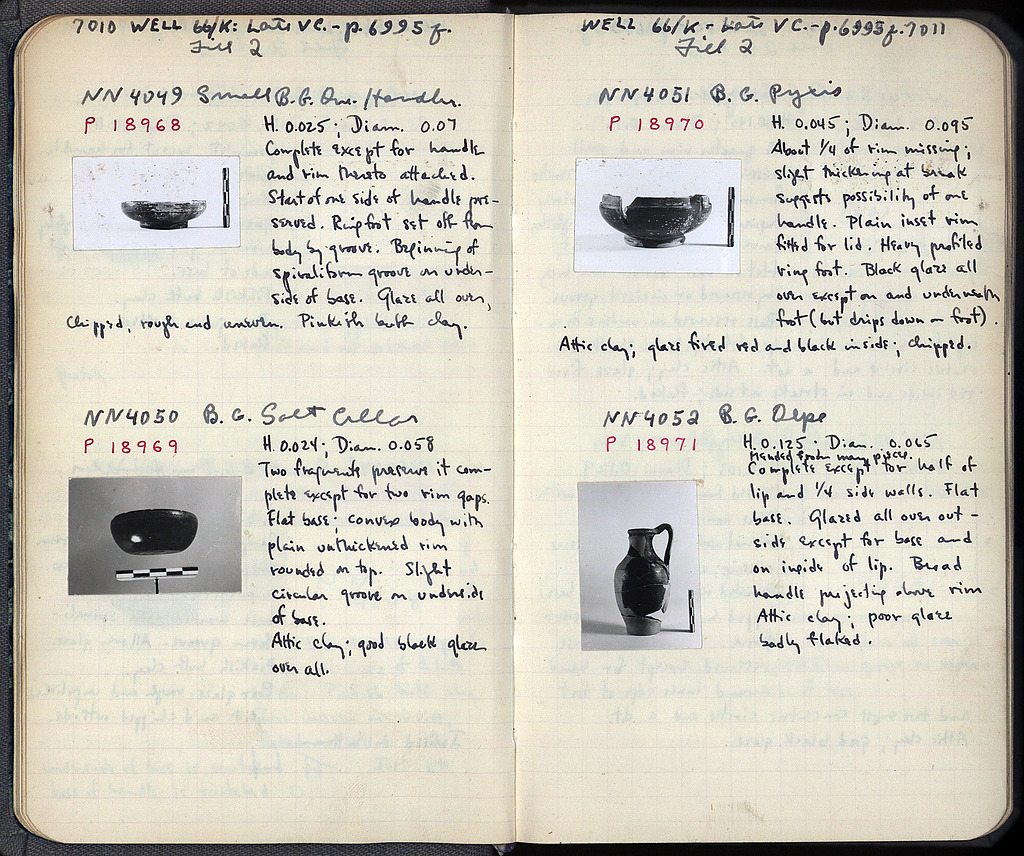 7010 WELL 66/K: Late V C. - p. 6995 f.
Fill 2
NN 4049 Small B.G. One/Handler.
P 18968
H. 0.025; Diam. 0.07
Complete except for handle
and rim thereto attached.
Start of one side of handle pre-
served. Ring foot set off from
body by groove. Beginning of
spiraliform groove on under-
side of base. Glaze all over,
chipped, rough and uneven. Pinkish buff clay.
NN 4050 B.G. Salt Cellar
P 18969
H. 0.024; Diam. 0.058
Two fragments preserve it com-
plete except for two rim gaps.
Flat base; convex body with
plain unthickened rim
rounded on top. Slight
circular groove on underside
of base.
Attic clay; good black glaze
over all.
WELL 66/K - Late V C. - p. 6995 f. 7011
Fill 2
NN 4051 B.G. Pyxis
P 18970
H. 0.045; Diam. 0.095
About 1/4 of rim missing;
slight thickening at break
suggests possibility of one
handle. Plain inset rim
fitted for lid. Heavy profiled
ring foot. Black glaze all
over except on and underneath
foot (but drips down on foot).
Attic clay; glaze fired red and black inside; chipped.
NN 4052 B.G. Olpe
P 18971
H. 0.125; Diam. 0.065
Mended from many pieces.
Complete except for half of
lip and 1/4 side walls. Flat
base. Glazed all over out-
side except for base and
on inside of lip. Broad
handle projecting above rim
Attic clay; poor glaze
badly flaked.